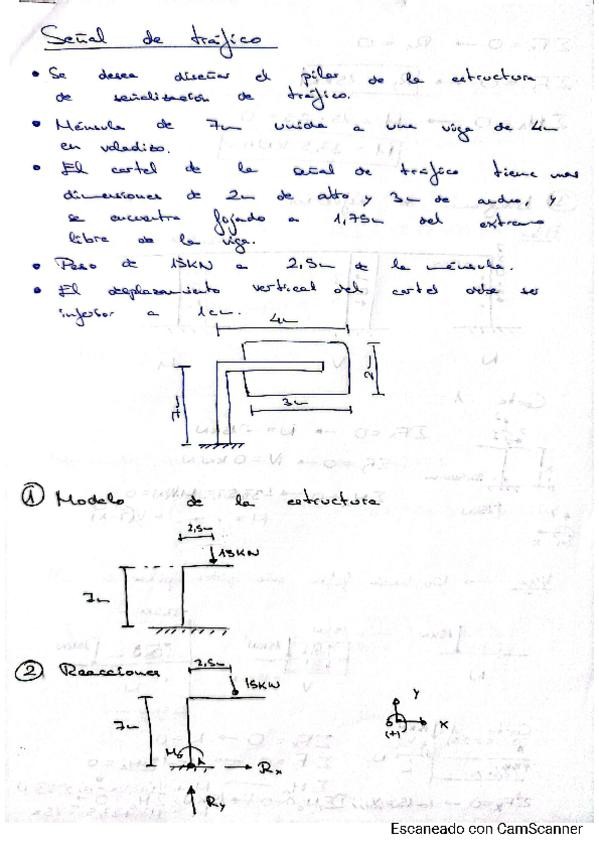 Señal de tráfico
• Se desea diseñar el pilar de la estructura
de señalización de tráfico.
• Ménsula de 7m unida a una viga de 4m
en voladizo.
• El cartel de la señal de tráfico tiene unas
dimensiones de 2m de alto y 3m de ancho, y
se encuentra fijado a 1,75m del extremo
libre de la viga.
• Peso de 15KN a 2,5m de la ménsula.
• El desplazamiento vertical del cartel debe ser
inferior a 1cm.
4m
2m
7m
3m
① Modelo de la estructura
2,5m
15KN
7m
② Reacciones
2,5m
15KN
7m
A
Rx
Ry
y
x
(+)
Escaneado con CamScanner